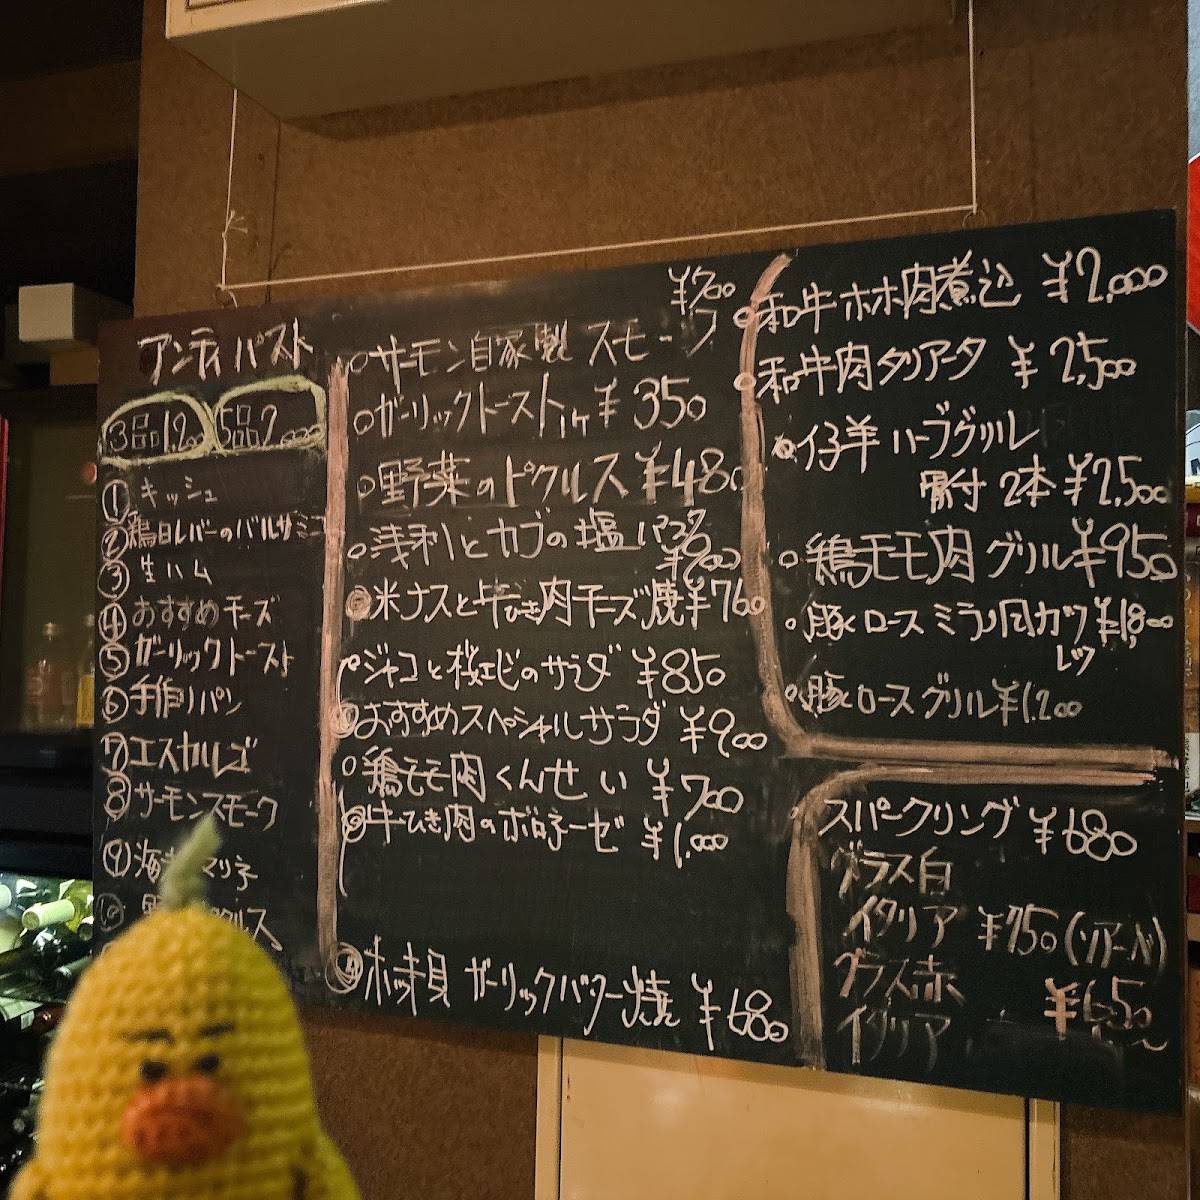 アンティパスト
3品1,200 5品2,000
① キッシュ
② 鶏白レバーのバルサミコ
③ 生ハム
④ おすすめチーズ
⑤ ガーリックトースト
⑥ 手作りパン
⑦ エスカルゴ
⑧ サーモンスモーク
⑨ 海老マリネ
⑩ ピクルス
¥700
○ サーモン自家製 スモーク
○ ガーリックトースト 1ヶ ¥350
○ 野菜のピクルス ¥480
○ 浅利とカブの塩バター
¥900
米ナスと牛ひき肉チーズ焼 ¥760
ジャコと桜エビのサラダ ¥850
おすすめスペシャルサラダ ¥900
○ 鶏モモ肉くんせい ¥700
牛ひき肉のボロネーゼ ¥1,000
ホッキ貝 ガーリックバター焼 ¥680
○ 和牛ホホ肉煮込 ¥2,000
○ 和牛肉タリアータ ¥2,500
仔羊 ハーブグリル
骨付 2本 ¥2,500
○ 鶏モモ肉グリル ¥950
○ 豚ロースミラノ風カツ ¥1,800
レツ
○ 豚ロースグリル ¥1,200
スパークリング ¥680
グラス白
イタリア ¥750 (ソアーベ)
グラス赤
イタリア ¥650~